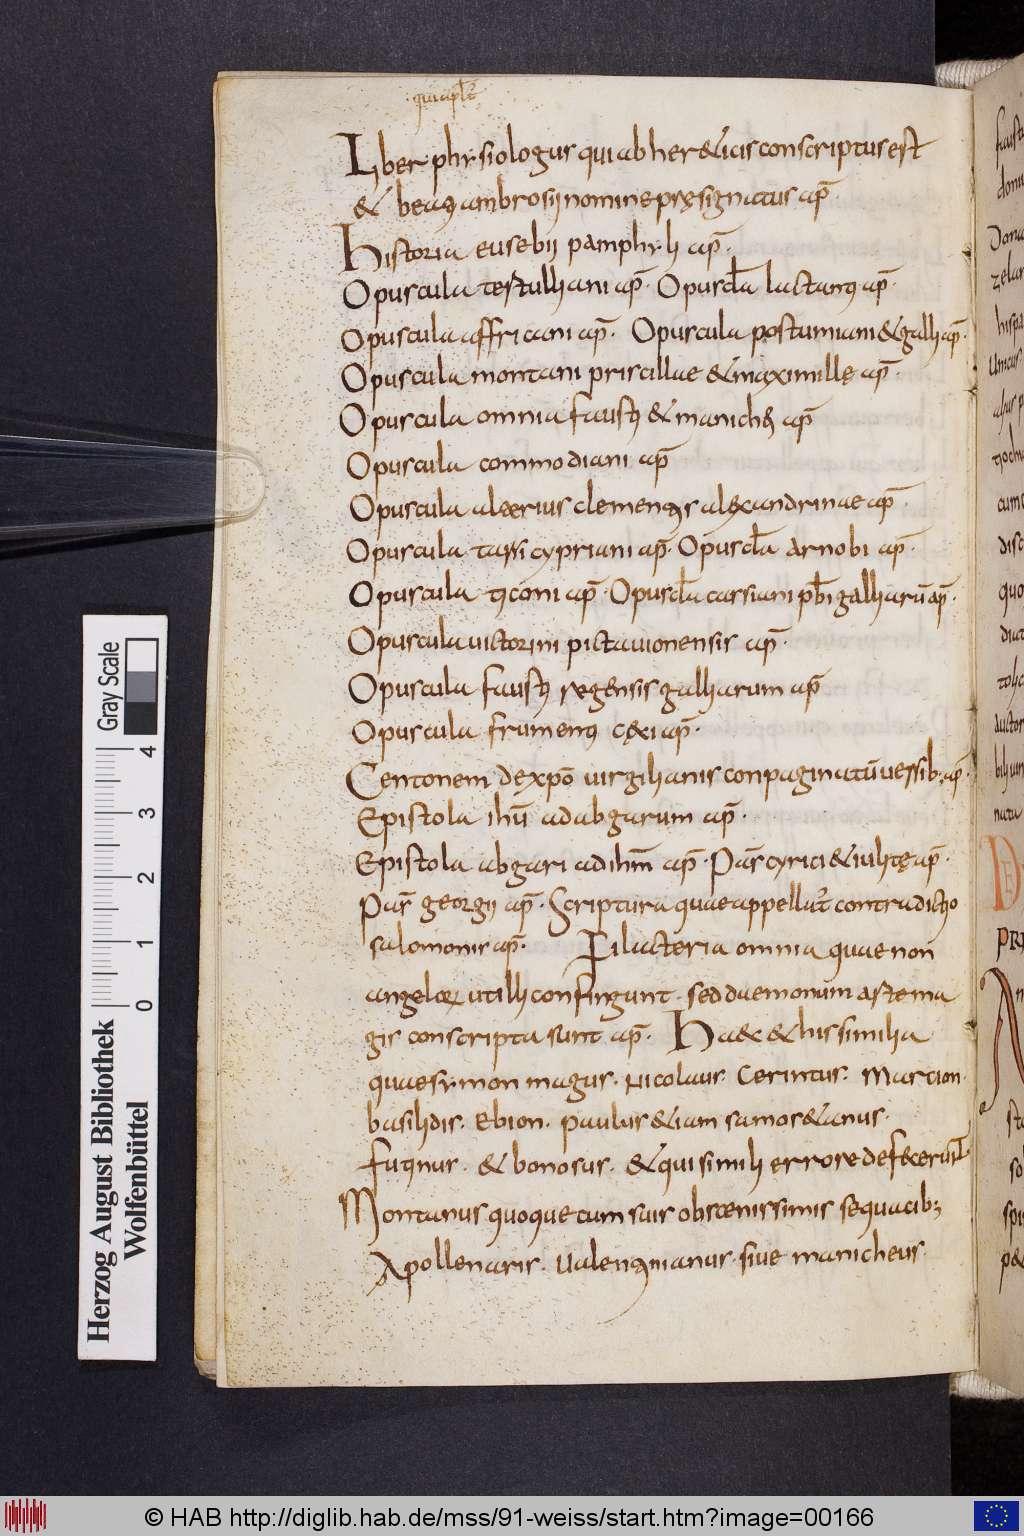 qui appłt
Liber physiologus qui ab hereticis conscriptus est
& beati ambrosij nomine pręsignatus ap̄
Historia eusebij pamphyli ap̄.
Opuscula tertulliani ap̄. Opuscła lactanti ap̄.
Opuscula affricani ap̄. Opuscula postumiani & galli ap̄.
Opuscula montani priscillae & maximillę ap̄.
Opuscula omnia fausti & manichei ap̄
Opuscula commodiani ap̄
Opuscula alterius clementis alexandrinae ap̄.
Opuscula tassi cypriani ap̄. Opuscła arnobi ap̄.
Opuscula ticoni ap̄. Opuscła cassiani pb̄i galliarū ap̄.
Opuscula uictorini pictauionensis ap̄.
Opuscula fausti regensis galliarum ap̄
Opuscula frumenti ceti ap̄.
Centonem de xpō uirgilianis conpaginatū uersib; ap̄.
Epistola ihū ad abgarum ap̄.
Epistola abgari ad ihm̄ ap̄. Pas̄ cyrici & iulitę ap̄.
Pas̄ georgij ap̄. Scriptura quae appellat̄ contradictio
salomonis ap̄. Filacteria omnia quae non
angelorum ut illi confingunt. sed daemonum arte ma
gis conscripta sunt ap̄. Haec & his similia
quae symon magus. nicolaus. Cerintus. Marcion.
basilidis. Ebion. paulus &iam samos&anus.
futinus. & bonosus. & qui simili errore defecerunt
Montanus quoque cum suis obscenissimis sequacib;
Apollenaris. Ualentinianus. siue manicheus.
Herzog August Bibliothek
Wolfenbüttel
Gray Scale
0 1 2 3 4
© HAB http://diglib.hab.de/mss/91-weiss/start.htm?image=00166